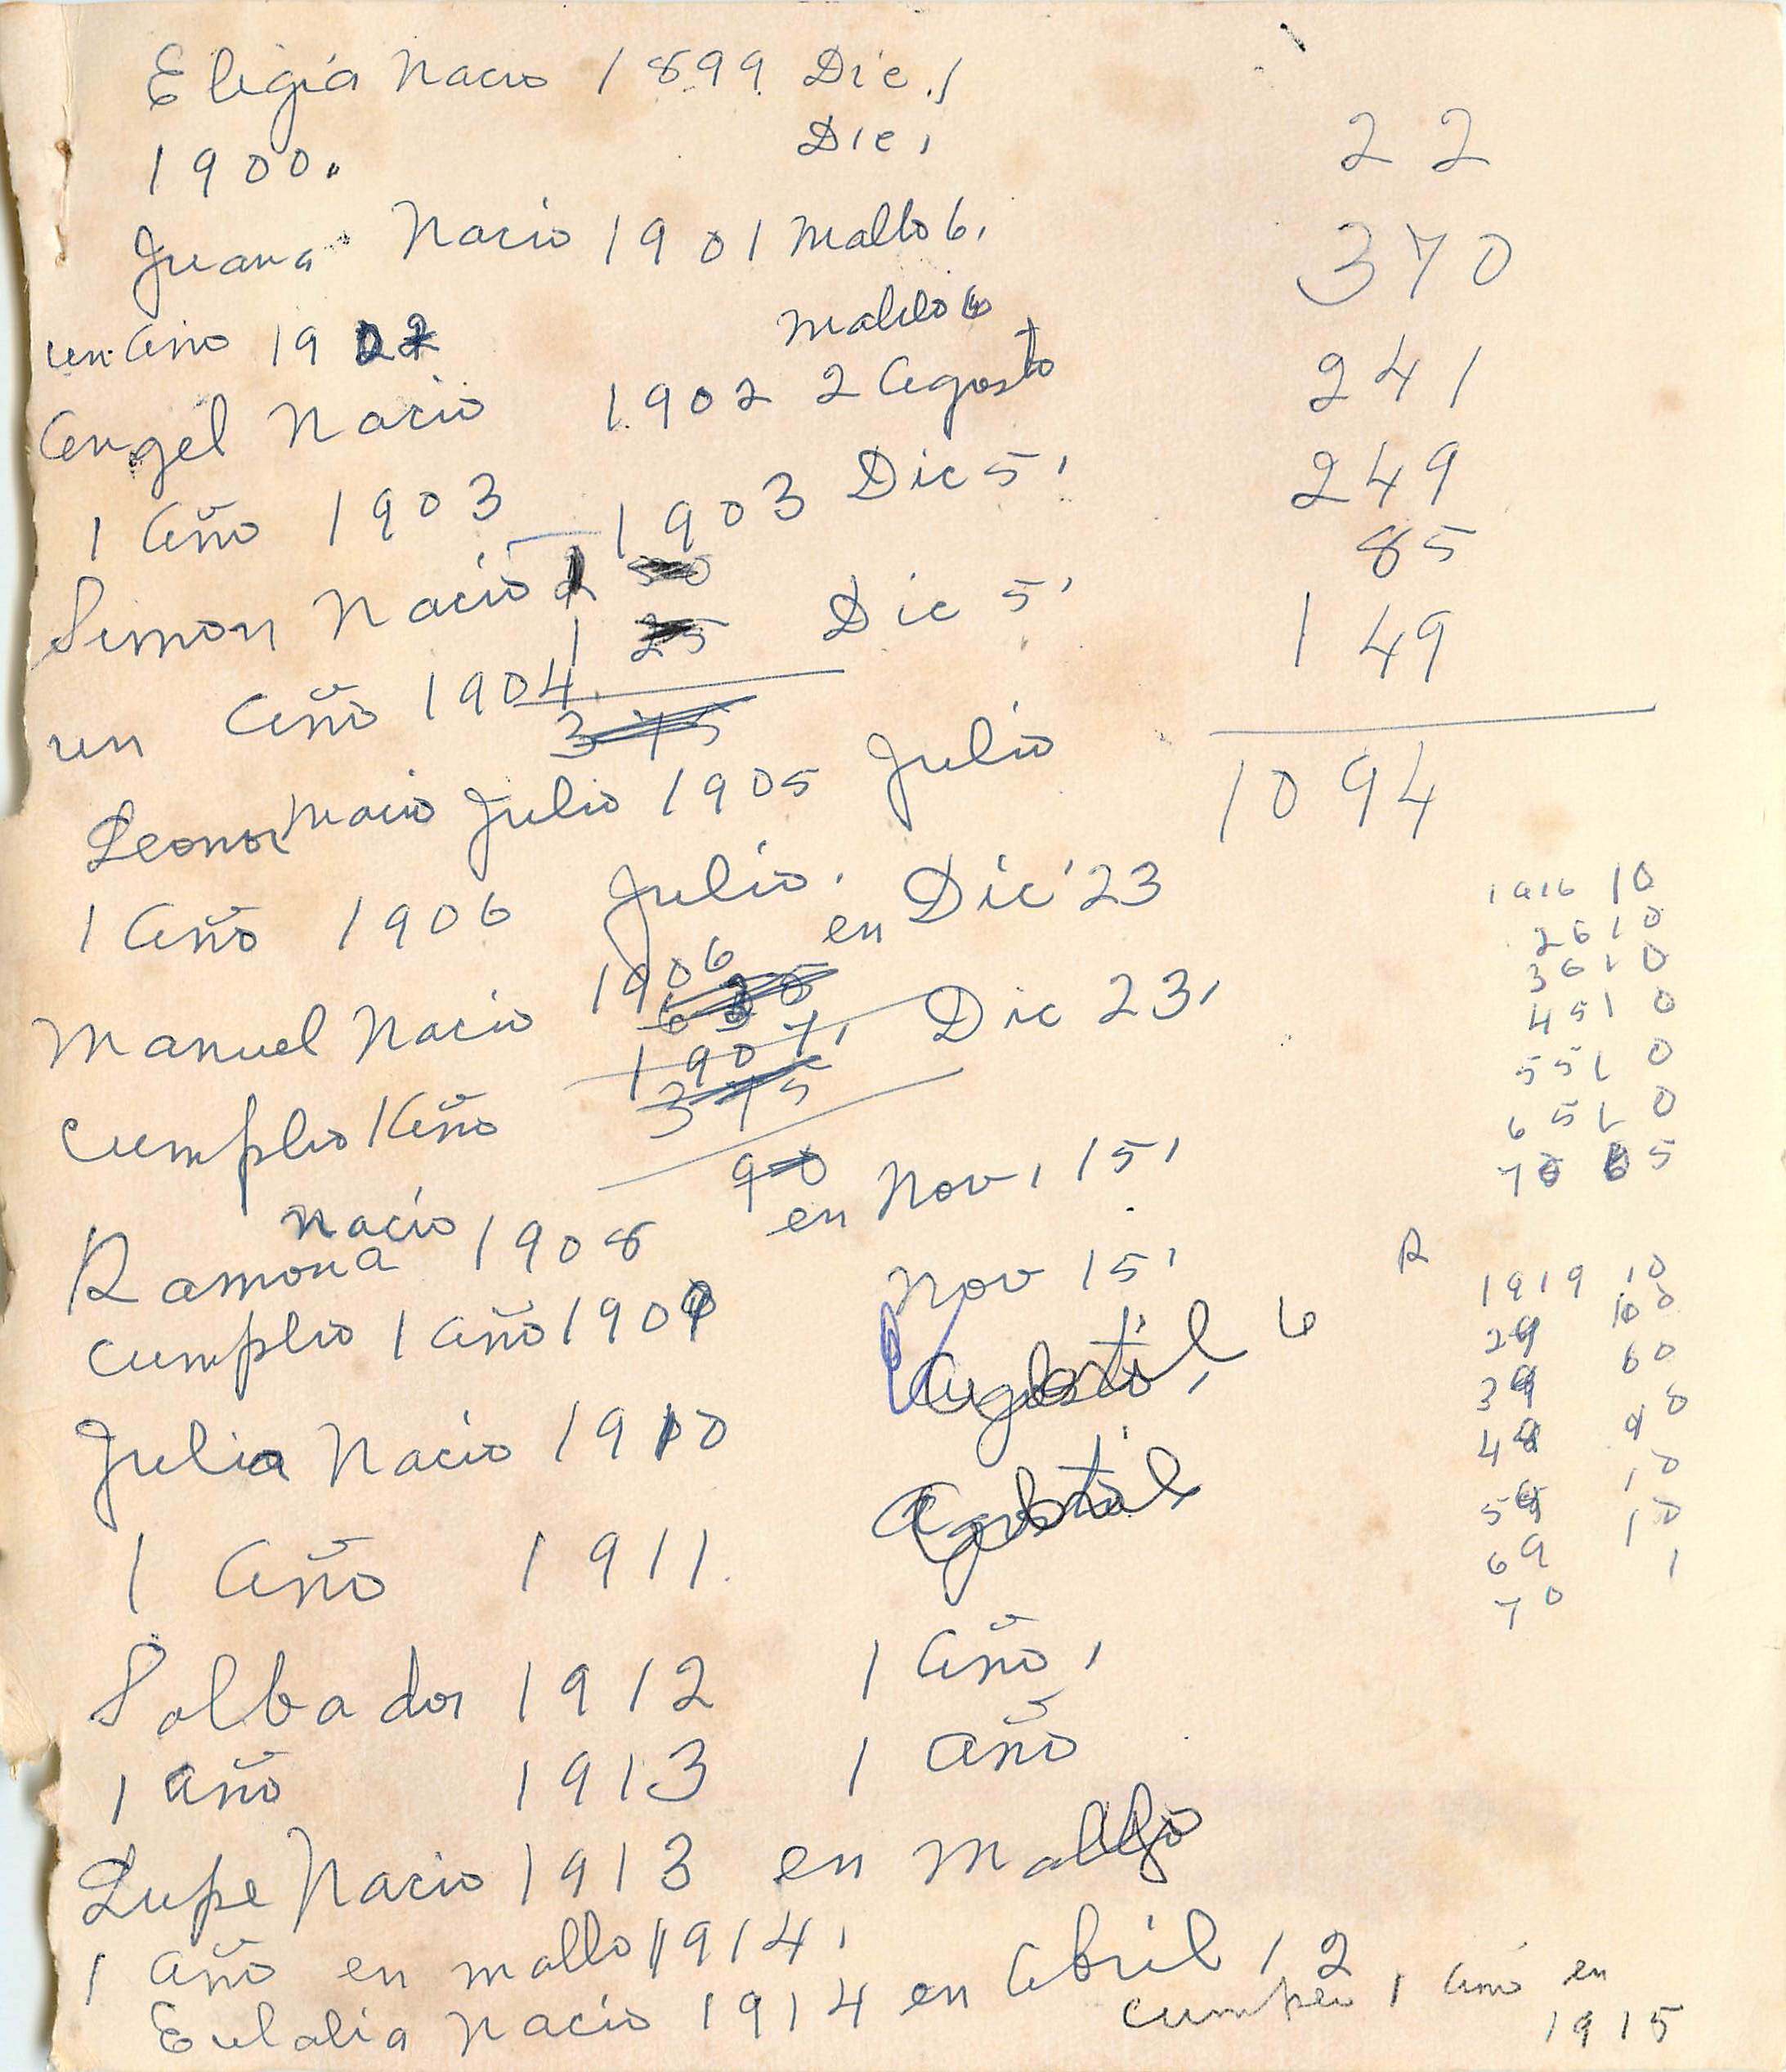 Eligia Nacio 1899 Dic. 1
1900. Dic,
Juana Nacio 1901 Mallo 6.
un Año 1902 Mallo 6
Angel Nacio 1902 2 Agosto
1 Año 1903
Simon Nacio 1903 Dic 5,
un Año 1904 Dic 5,
375
Leonor Nacio Julio 1905 Julio
1 Año 1906 Julio.
Manuel Nacio 1906 en Dic 23
Cumplio 1 Año 1907, Dic 23,
375
90
Ramona Nacio 1908 en Nov, 15,
Cumplio 1 Año 1909 Nov 15,
Julia Nacio 1910 6
1 Año 1911
Salbador 1912 1 Año,
1 Año 1913 1 Año
Lupe Nacio 1913 en Mallo
1 Año en mallo 1914,
Eulalia Nacio 1914 en Abril 12
Cumplio 1 Año en
1915
22
370
241
249
85
149
1094
1916 10
26 10
36 10
45 10
55 10
65 10
70 5
R
1919 10
29
39
49
59 10
69 10
70 1